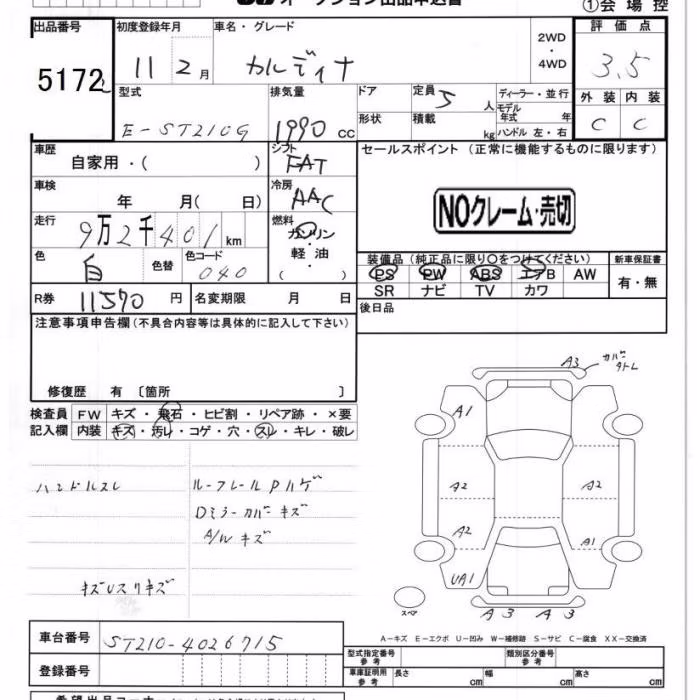 オークション出品申込書
①会場控
出品番号 初度登録年月 車名・グレード 評価点
5172 11 2月 カルディナ 2WD・4WD 3.5
型式 排気量 ドア 定員 ディーラー・並行 外装 内装
E-ST210G 1990 cc 5人 モデル年式 年 C C
形状 積載 kg ハンドル 左・右
車歴 シフト セールスポイント (正常に機能するものに限ります)
自家用・( ) FAT
車検 冷房 NOクレーム・売切
年 月( 日) AAC
走行 燃料
9万2千401km ガソリン・軽油・( )
装備品(純正品に限り○をつけてください) 新車保証書
色 色替 色コード PS PW ABS エアB AW 有・無
白 040 SR ナビ TV カワ
R券 11570円 名変期限 月 日 後日品
注意事項申告欄(不具合内容等は具体的に記入して下さい)
修復歴 有 〔箇所 〕
検査員 FW キズ・飛石・ヒビ割・リペア跡・×要
記入欄 内装 キズ・汚レ・コゲ・穴・スレ・キレ・破レ
ハンドルスレ ルーフレールPハゲ
Dミラーカバーキズ
A/Wキズ
キズUスリキズ
A3 カバー
A1
A2 A2
A2 A1
UA1
スペア A3 A3
A-キズ E-エクボ U-凹み W-補修跡 S-サビ C-腐食 XX-交換済
車台番号 ST210-4026715
登録番号
型式指定番号 参考 類別区分番号 参考
車庫証明用 参考 長さ cm 幅 cm 高さ cm